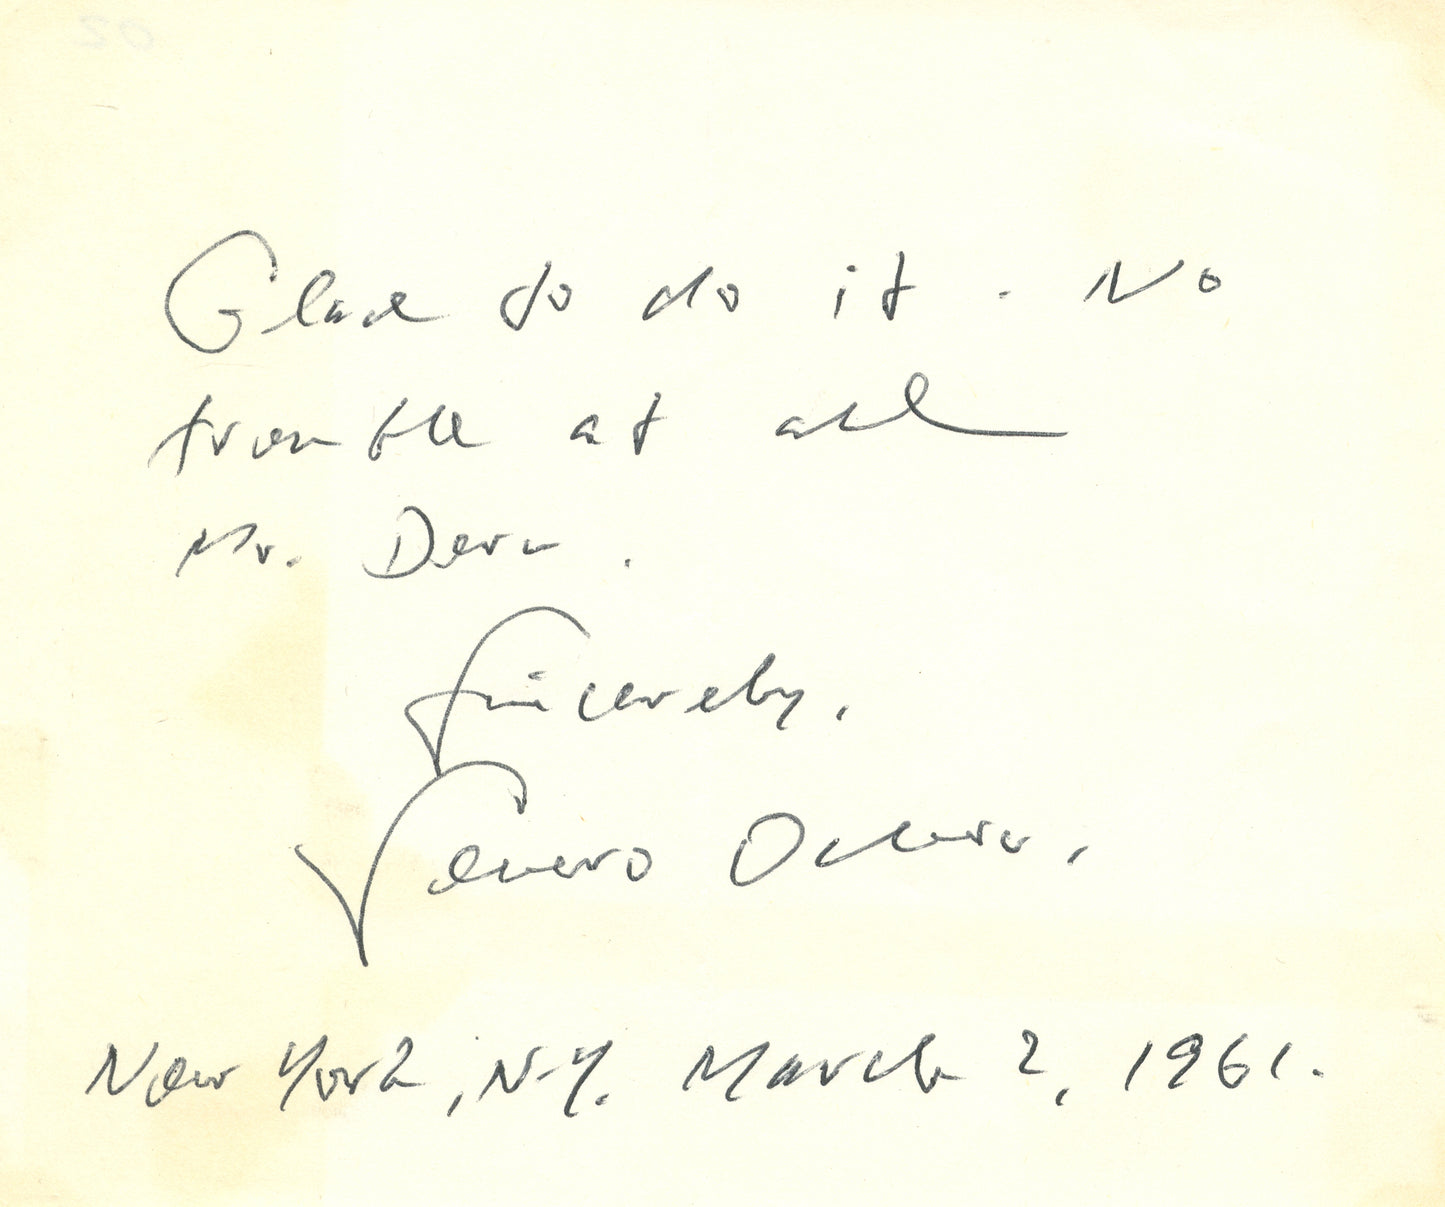 Glad to do it. No
trouble at all
Mr. Dern.
Sincerely,
Severo Ochoa,
New York, N.Y. March 2, 1961.